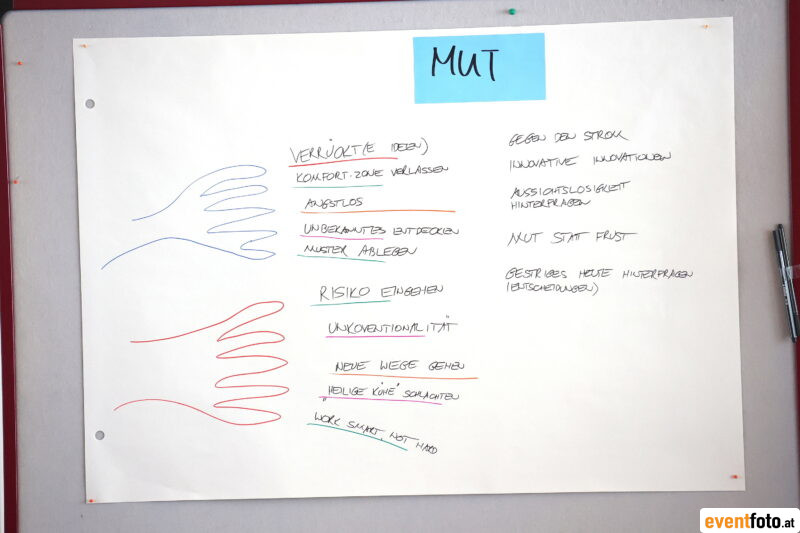 MUT
VERRÜCKT(E IDEEN)
KOMFORT-ZONE VERLASSEN
ANGSTLOS
UNBEKANNTES ENTDECKEN
MUSTER ABLEGEN
RISIKO EINGEHEN
UNKOVENTIONALITÄT
NEUE WEGE GEHEN
"HEILIGE KÜHE" SCHLACHTEN
WORK SMART, NOT HARD
GEGEN DEN STROM
INNOVATIVE INNOVATIONEN
AUSSICHTSLOSIGKEIT
HINTERFRAGEN
MUT STATT FRUST
GESTRIGES HEUTE HINTERFRAGEN
(ENTSCHEIDUNGEN)
eventfoto.at